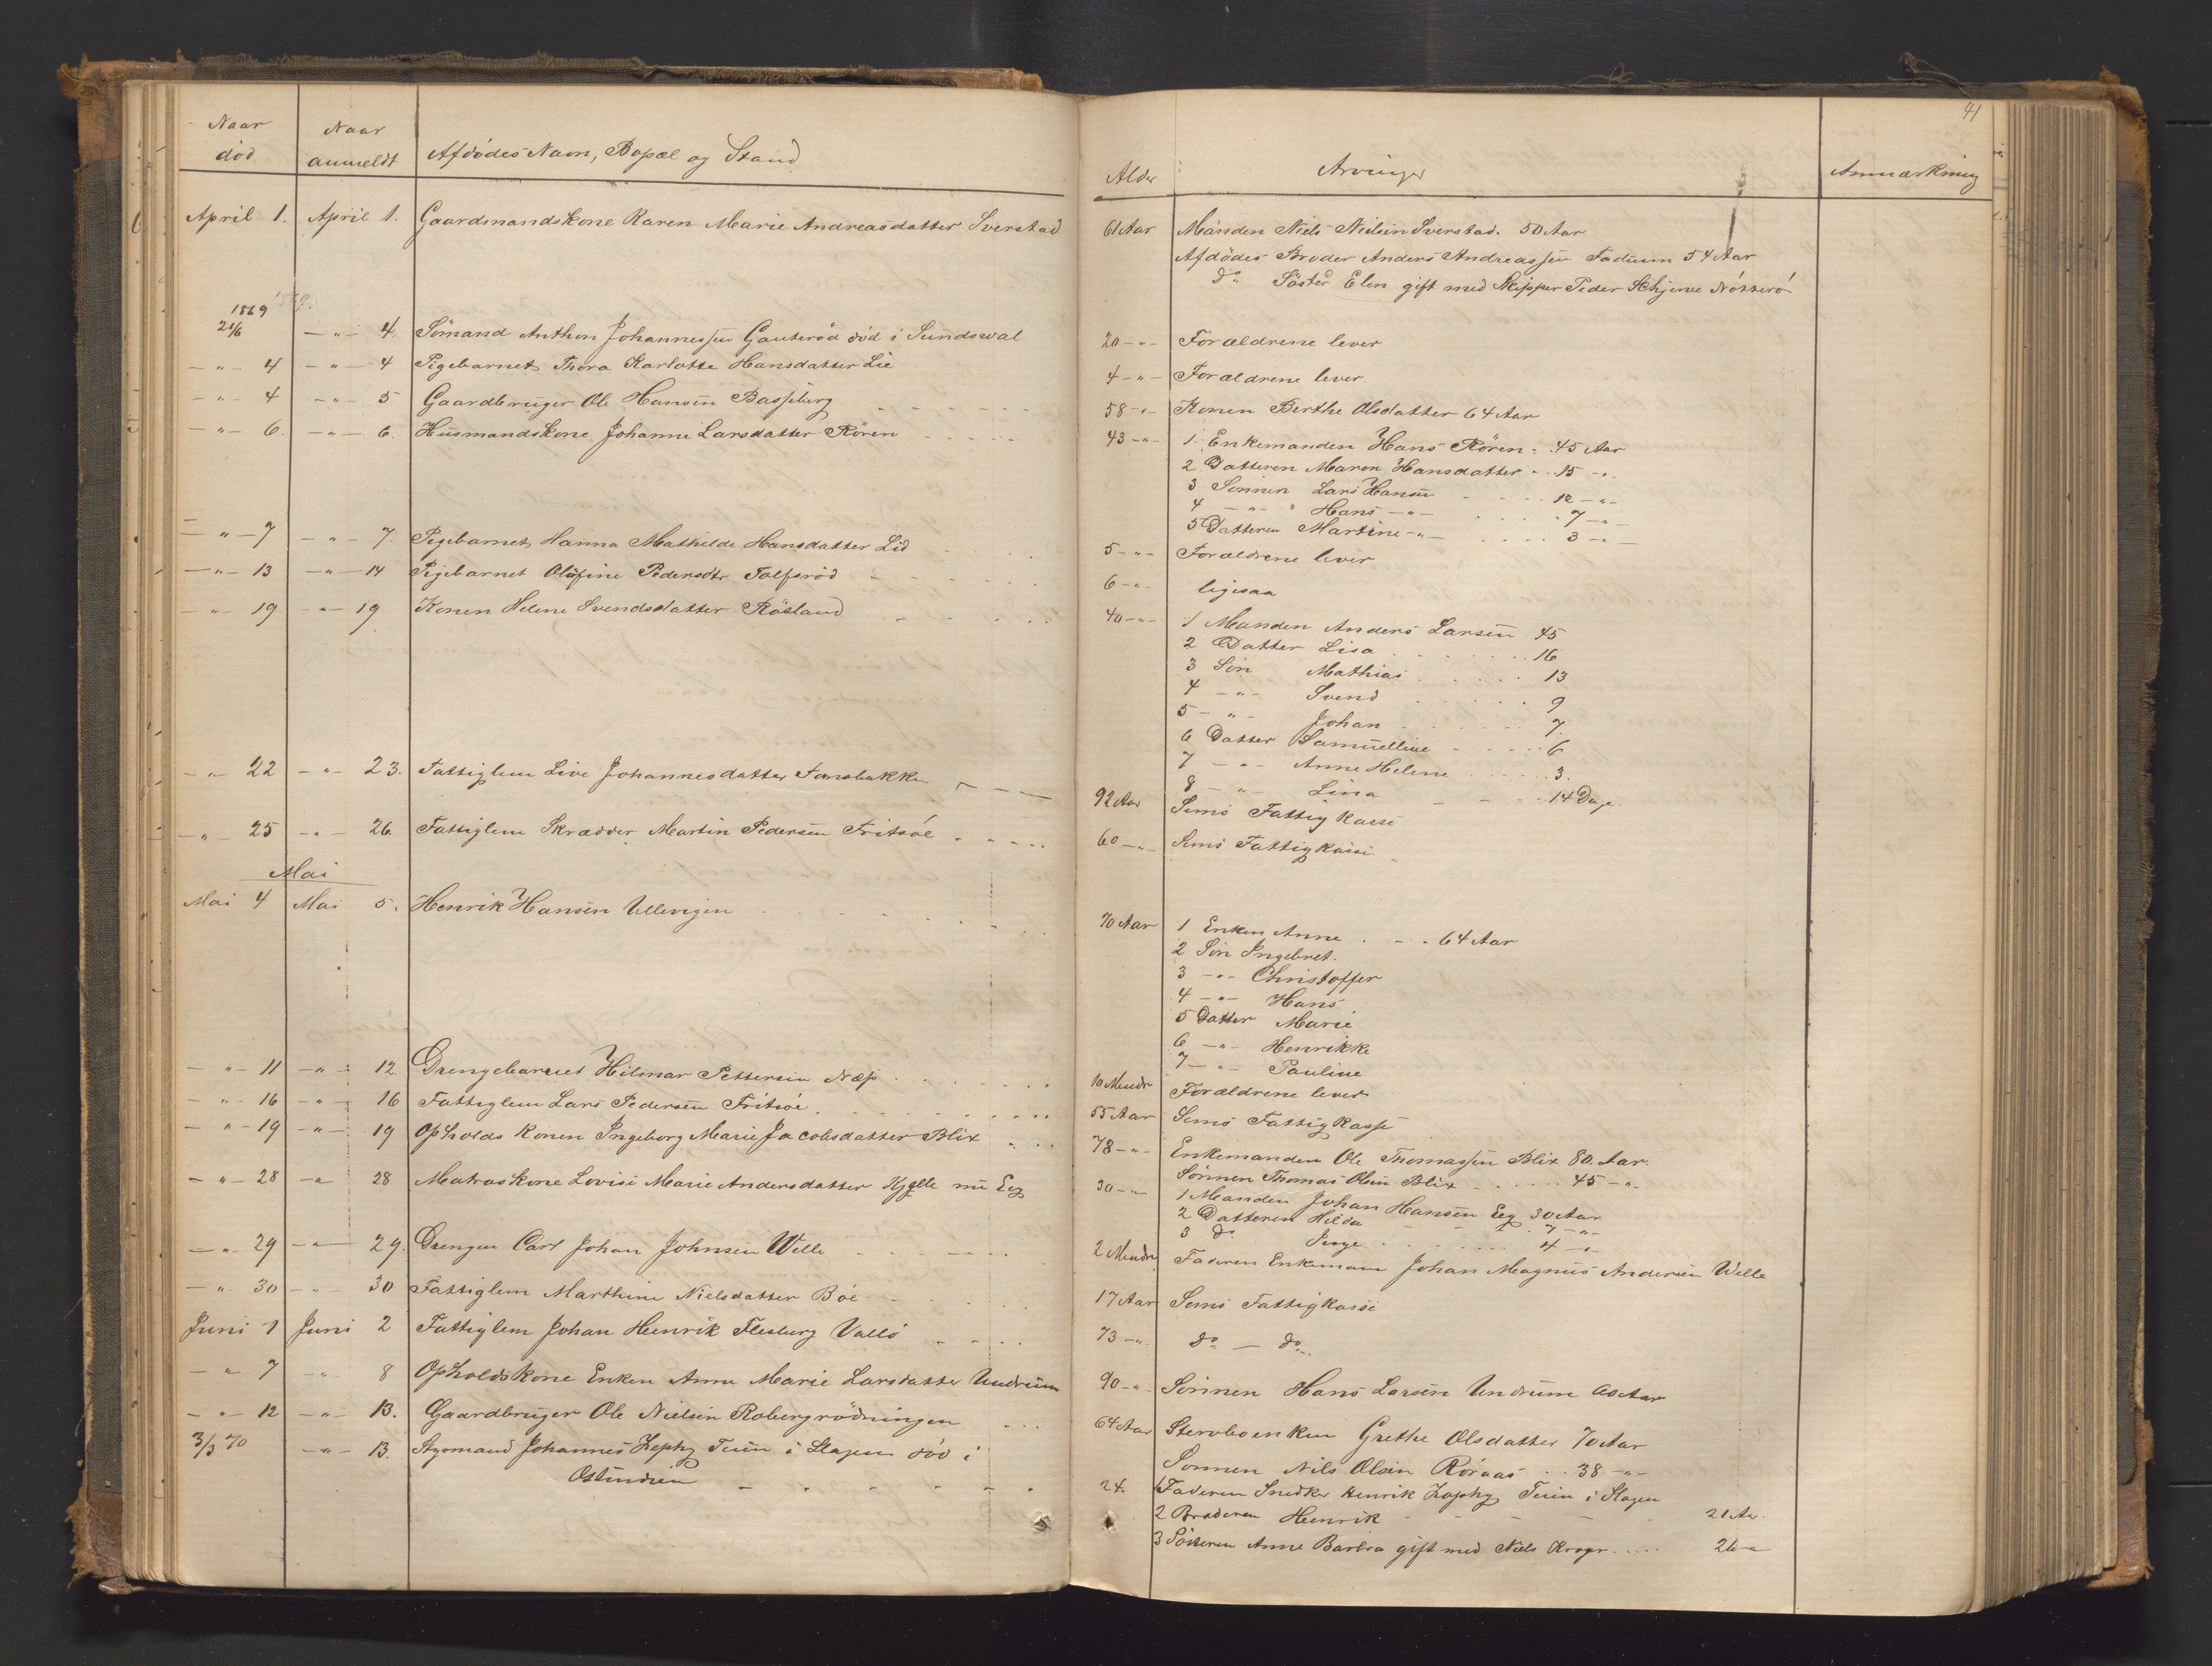 41
Naar død
Naar anmeldt
Afdødes Navn, Bopæl og Stand
Alder
Arvinger
Anmærkning
April 1. April 1. Gaardmandskone Karen Marie Andreasdatter Sverstad 61 Aar Manden Niels Nielsen Sverstad. 50 Aar
Afdødes Broder Anders Andreassen Fadum 54 Aar
do Søster Elen gift med Skipper Peder Schjerve Nøtterø
1869
21/6 -"- 4. Sømand Anthon Johannessen Gauterød død i Sundswal 20 -"- Forældrene lever
-"- 4 -"- 4 Pigebarnet Thora Karlotte Hansdatter Lie 4 -"- Forældrene lever.
-"- 4 -"- 5 Gaardbruger Ole Hansen Basseberg 58 -"- Konen Berthe Olsdatter 64 Aar
-"- 6. -"- 6. Husmandskone Johanne Larsdatter Røren 43 -"- 1. Enkemanden Hans Røren 45 Aar
2 Datteren Maren Hansdatter 15 -"-
3 Sønnen Lars Hansen 12 -"-
4 -"- Hans -"- 7 -"-
5 Datteren Martine -"- 3 -"-
-"- 7 -"- 7. Pigebarnet Hanna Mathilde Hansdatter Lid 5 -"- Forældrene lever
-"- 13 -"- 14 Pigebarnet Olufine Pedersdtr Tolfsrød 6 -"- ligesaa
-"- 19 -"- 19 Konen Helene Svendsdatter Røsland 40 -"- 1 Manden Anders Larsen 45
2 Datter Lisa 16
3 Søn Mathias 13
4 -"- Svend 9
5 -"- Johan 7.
6 Datter Samuelline 6
7 -"- Anne Helene 3.
8 -"- Lina 14 Dage.
-"- 22 -"- 23. Fattiglem Live Johannesdatter Fonsbakken 92 Aar Sems Fattigkasse
-"- 25 -"- 26 Fattiglem Skrædder Martin Pedersen Fritsøe 60 -"- Sems Fattigkasse.
Mai
Mai 4 Mai 5. Henrik Hansen Ullevigen 70 Aar 1 Enken Anne 64 Aar
2 Søn Ingebret.
3 -"- Christoffer
4 -"- Hans
5 Datter Marie
6 -"- Henrikke
7 -"- Pauline
-"- 11 -"- 12 Drengebarnet Hilmar Pettersen Næss 10 Mndr Forældrene lever
-"- 16 -"- 16 Fattiglem Lars Pedersen Fritsøe. 55 Aar Sems Fattigkasse
-"- 19 -"- 19 Opholdskonen Ingeborg Marie Jacobsdatter Blix 78 -"- Enkemanden Ole Thomassen Blix 80. Aar.
Sønnen Thomas Olsen Blix 45 -"-
-"- 28 -"- 28 Matroskone Lovise Marie Andersdatter Kjelle nu Eeg 30 -"- 1 Manden Johan Hansen Eeg 30 Aar
2 Datteren Hilda 7 -"-
3 do Inge 4 -"-
-"- 29 -"- 29. Drengen Carl Johan Johnsen Welle 2 Mndr Faderen Enkemann Johan Magnus Andersen Welle
-"- 30 -"- 30 Fattiglem Marthine Nielsdatter Bøe 17 Aar Sems Fattigkasse
Juni 1 Juni 2 Fattiglem Johan Henrik Flesburg Vallø 73 -"- do — do.
-"- 7 -"- 8 Opholdskone Enken Anne Marie Larsdatter Undrum 90 -"- Sønnen Hans Larsen Undrum 60 Aar
-"- 12 -"- 13. Gaardbruger Ole Nielsen Robergrødningen 64 Aar Stervboenken Grethe Olsdatter 70 Aar
Sønnen Nils Olsen Røraas 38 -"-
3/3 70 -"- 13. Styrmand Johannes Zephy Tuen i Slagen død i 24. 1 Faderen Snedker Henrik Zephy Tuen i Slagen
Ostindien
2 Broderen Henrik 21 Aar.
3 Søsteren Anne Barbra gift med Niels Kroger 26 -"-